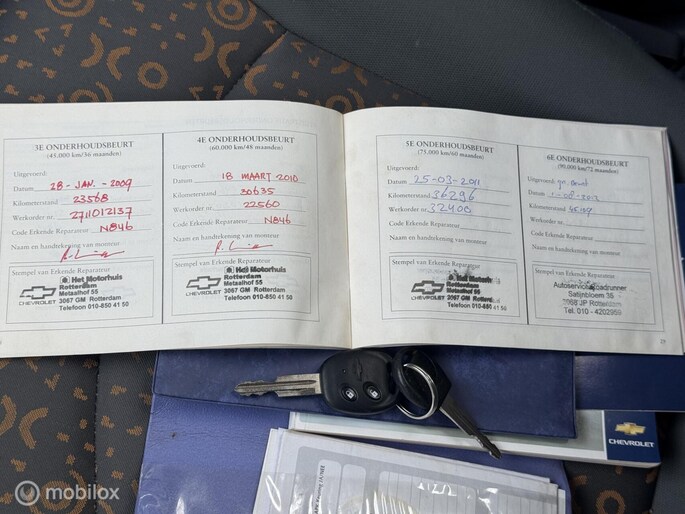 3E ONDERHOUDSBEURT
(45.000 km/36 maanden)
Uitgevoerd:
Datum 28-JAN.-2009
Kilometerstand 23568
Werkorder nr. 2711012137
Code Erkende Reparateur N846
Naam en handtekening van monteur
Stempel van Erkende Reparateur
CHEVROLET
Het Motorhuis
Rotterdam
Metaalhof 55
3067 GM Rotterdam
Telefoon 010-850 41 50
4E ONDERHOUDSBEURT
(60.000 km/48 maanden)
Uitgevoerd:
Datum 18 MAART 2010
Kilometerstand 30635
Werkorder nr. 22560
Code Erkende Reparateur N846
Naam en handtekening van monteur
Stempel van Erkende Reparateur
CHEVROLET
Het Motorhuis
Rotterdam
Metaalhof 55
3067 GM Rotterdam
Telefoon 010-850 41 50
5E ONDERHOUDSBEURT
(75.000 km/60 maanden)
Uitgevoerd:
Datum 25-03-2011
Kilometerstand 36296
Werkorder nr. 32400
Code Erkende Reparateur
Naam en handtekening van monteur
Stempel van Erkende Reparateur
CHEVROLET
Het Motorhuis
Rotterdam
Metaalhof 55
3067 GM Rotterdam
Telefoon 010-850 41 50
6E ONDERHOUDSBEURT
(90.000 km/72 maanden)
Uitgevoerd:
Datum
Kilometerstand
Werkorder nr.
Code Erkende Reparateur
Naam en handtekening van monteur
Stempel van Erkende Reparateur
Autoservice Roadrunner
Satijnbloem 35
3068 JP Rotterdam
Tel. 010 - 4202959
27
CHEVROLET
mobilox